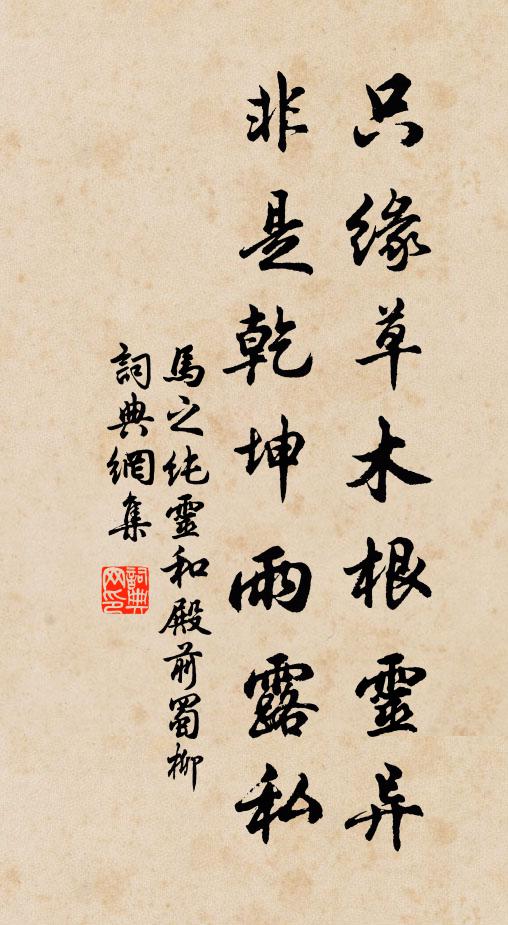 只缘草木根靈异
非是乾坤雨露私
馬之純靈和殿前蜀柳
詞典網集
詞典網印